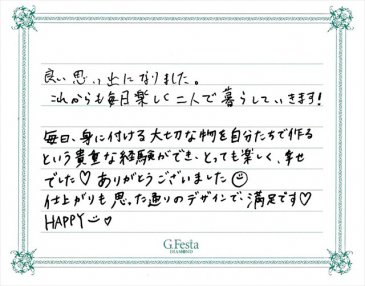 良い思い出になりました。
これからも毎日楽しく二人で暮らしていきます!
毎日、身に付ける大切な物を自分たちで作る
という貴重な経験ができ、とっても楽しく、幸せ
でした♡ ありがとうございました☺
仕上がりも思った通りのデザインで、満足です♡
HAPPY☺♡
G.Festa
DIAMOND